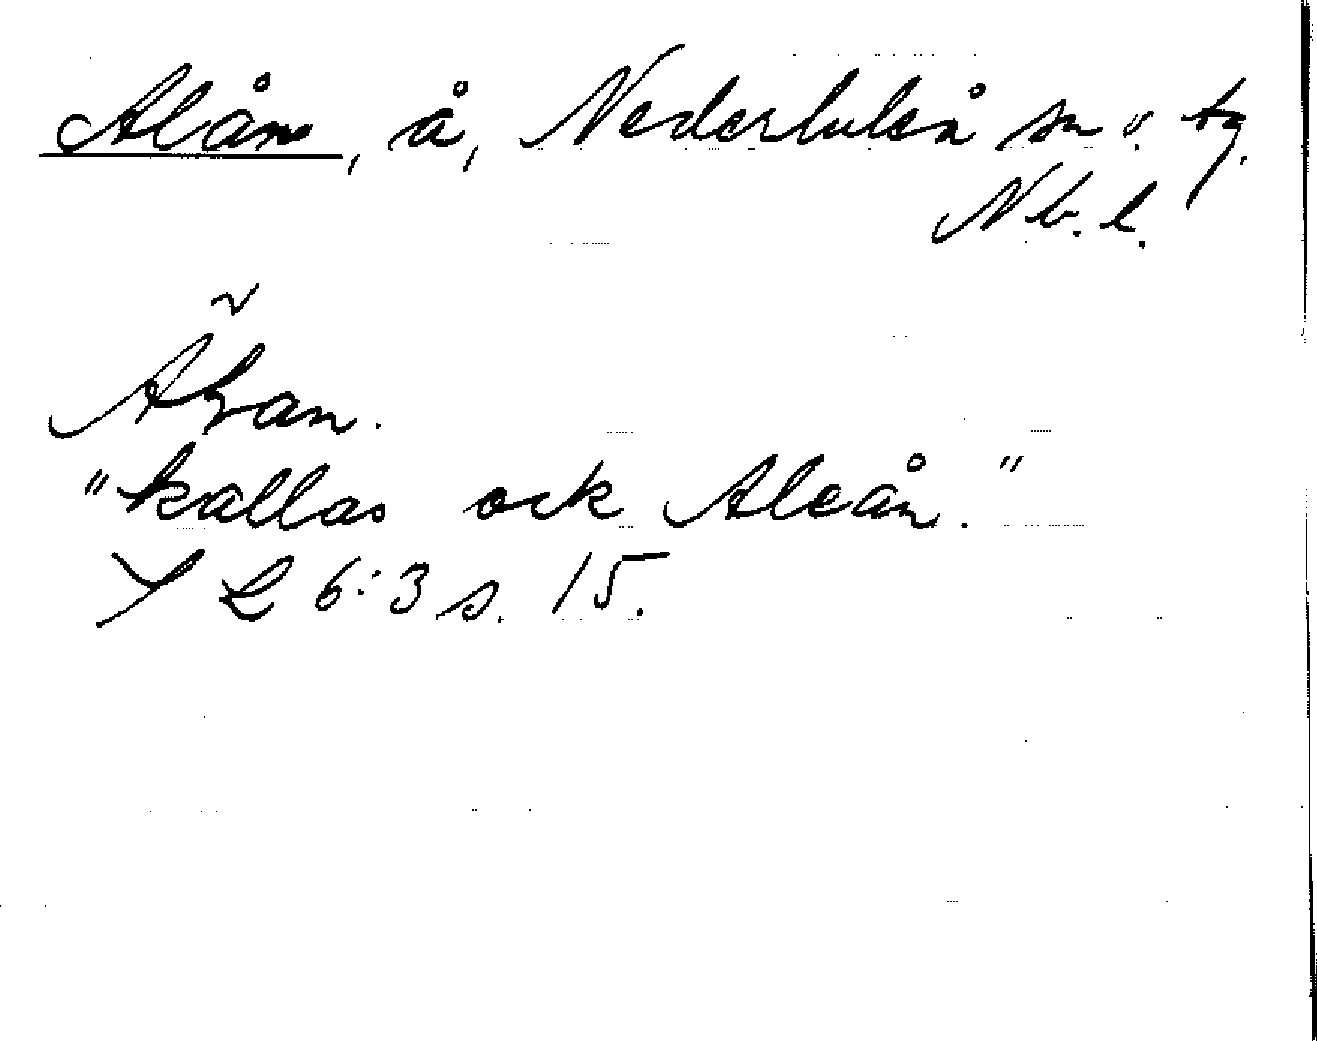 Alån, å, Nederluleå sn o. tg.
Nb. l.
"kallas ock Aleån."
S. 15.